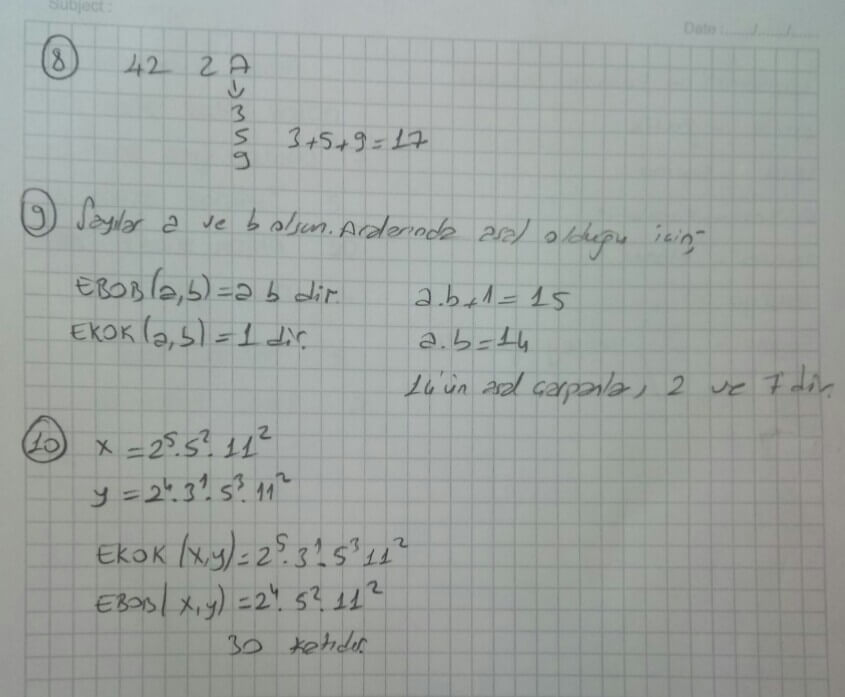 Subject :
Date : ....../....../......
8 42 2 A
↓
3
5 3+5+9=17
9
9 Sayılar a ve b olsun. Aralarında asal olduğu için;
EBOB(a,b)=a b dir. a.b+1=15
EKOK(a,b)=1 dir. a.b=14
14'ün asal çarpanları 2 ve 7 dir.
10 x = 2⁵.5².11²
y = 2⁴.3¹.5³.11²
EKOK(x,y)=2⁵.3¹.5³ 11²
EBOB(x,y)=2⁴.5².11²
30 katıdır.